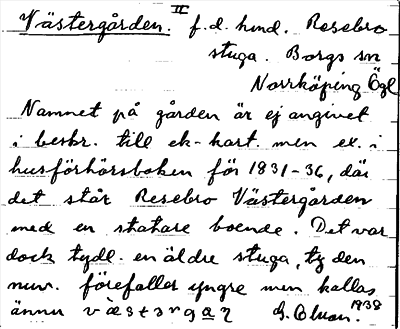 II
Västergården. f.d. hmd. Resebro
stuga. Borgs sn
Norrköping Ögl
Namnet på gården är ej angivet
i beskr. till ek-kart. men ex. i
husförhörsboken för 1831-36, där
det står Resebro Västergården
med en statare boende. Det var
dock tydl. en äldre stuga, ty den
nuv. förefaller yngre men kallas
ännu
1938